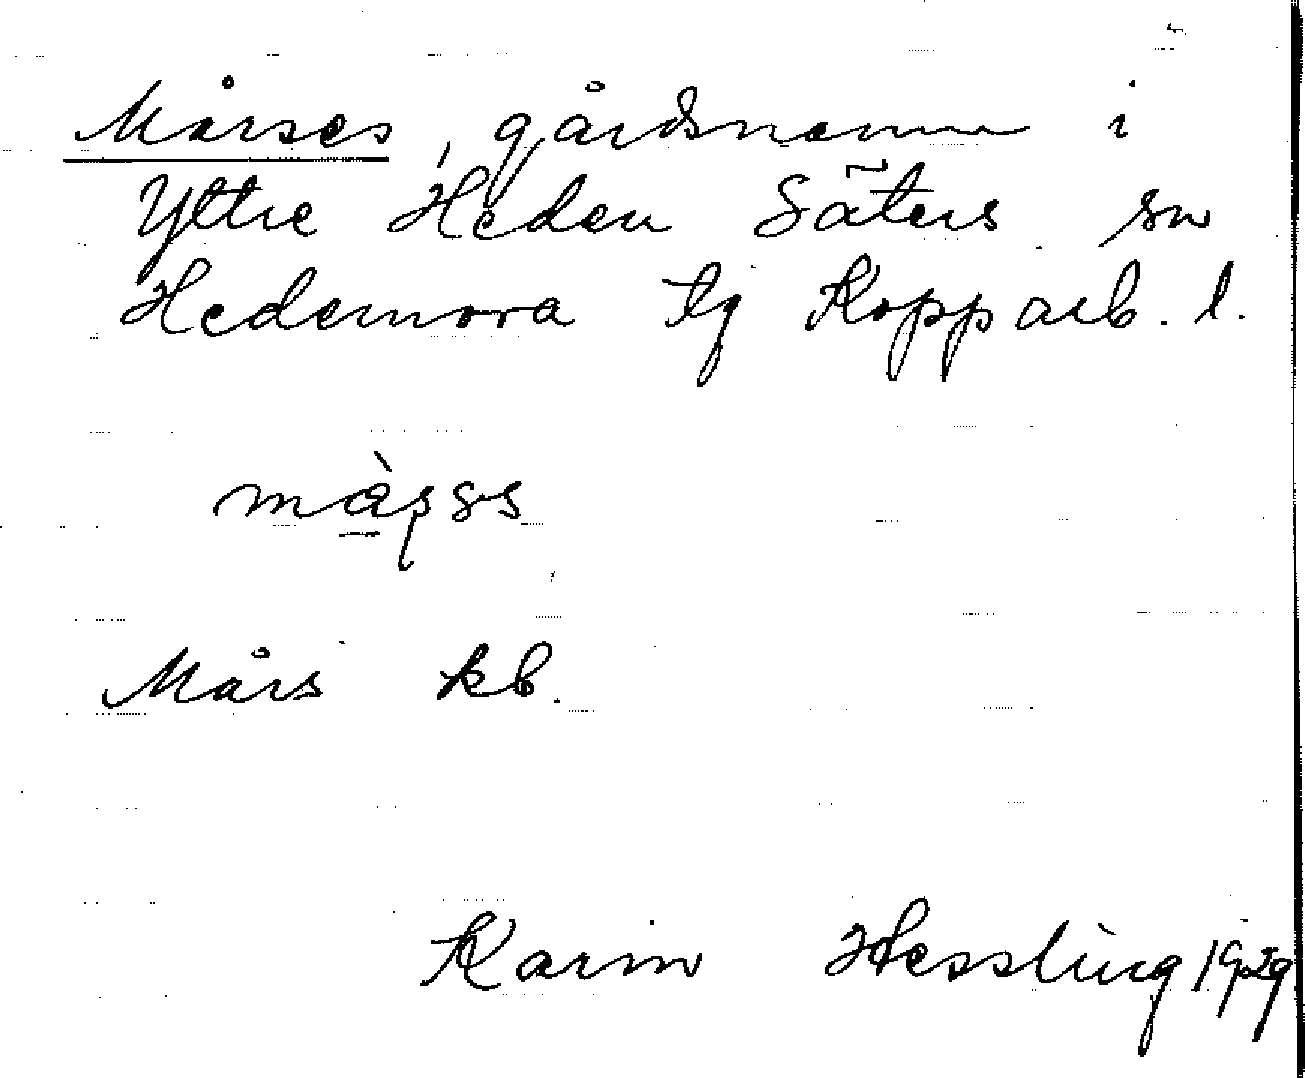 Mårses, gårdsnamn i
Yttre Heden Säters sn
Hedemora tg Kopparb. l.
Mårs kb.
Karin Hessling 1929